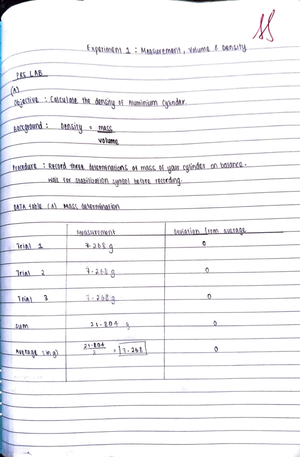 Experiment 1 : Measurement, Volume & Density
PRE LAB
(A)
Objective : Calculate the density of Aluminium Cylinder.
Background : Density = mass
volume
Procedure : Record three determinations of mass of your cylinder on balance.
Wait for stabilization symbol before recording.
DATA table (A) Mass determination
Measurement Deviation from average
Trial 1 7.268 g 0
Trial 2 7.268 g 0
Trial 3 7.268 g 0
Sum 21.804 g 0
Average (g) 21.804 = 7.268 0
3